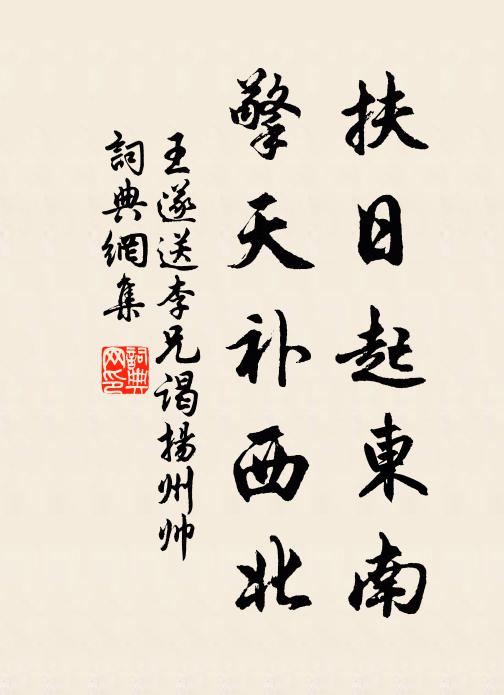 扶日起東南
擎天补西北
王遂送李兄谒揚州帅
詞典網集
詞典网印